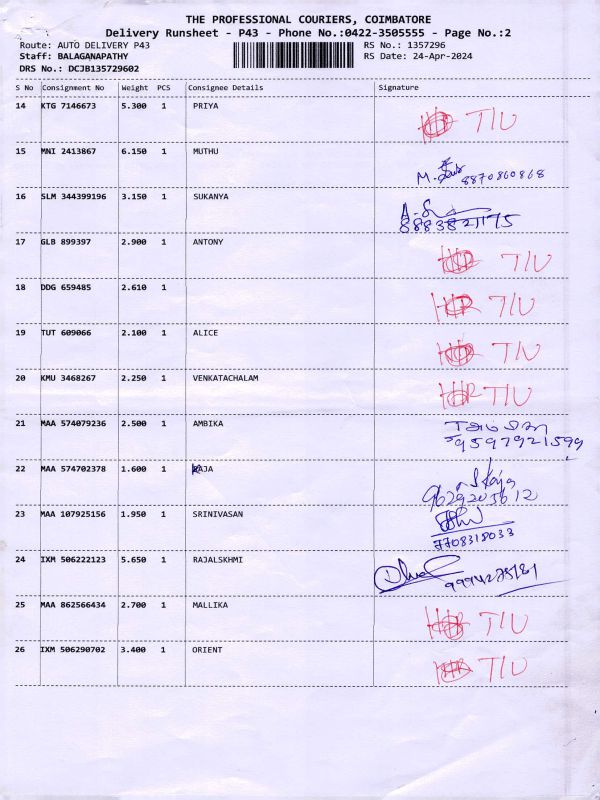 THE PROFESSIONAL COURIERS, COIMBATORE
Delivery Runsheet - P43 - Phone No.:0422-3505555 - Page No.:2
Route: AUTO DELIVERY P43 RS No.: 1357296
Staff: BALAGANAPATHY RS Date: 24-Apr-2024
DRS No.: DCJB135729602
S No Consignment No Weight PCS Consignee Details Signature
14 KTG 7146673 5.300 1 PRIYA T/U
15 MNI 2413867 6.150 1 MUTHU M. 8870860868
16 SLM 344399196 3.150 1 SUKANYA
17 GLB 899397 2.900 1 ANTONY T/U
18 DDG 659485 2.610 1 T/U
19 TUT 609066 2.100 1 ALICE T/U
20 KMU 3468267 2.250 1 VENKATACHALAM T/U
21 MAA 574079236 2.500 1 AMBIKA
9597921599
22 MAA 574702378 1.600 1 RAJA
9629203612
23 MAA 107925156 1.950 1 SRINIVASAN
7708318033
24 IXM 506222123 5.650 1 RAJALSKHMI
25 MAA 862566434 2.700 1 MALLIKA T/U
26 IXM 506290702 3.400 1 ORIENT T/U